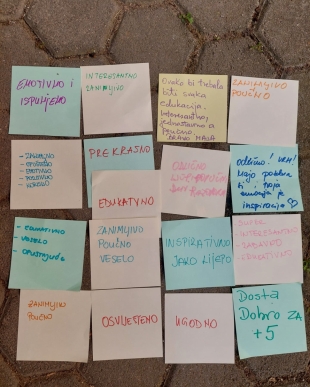 EMOTIVNO i
ISPUNJENO
INTERESANTNO
ZANIMLJIVO
Ovako bi trebala
biti svaka
edukacija.
Interesantno,
jednostavno a
poučno.
BRAVO MAJA
ZANIMLJIVO
POUČNO
- ZABAVNO
- POUČNO
- POZITIVNO
- KORISNO
PREKRASNO
EDUKATVNO
ODLIČNO
Odlično!
Majo
ti i tvoja
je
inspiracija ♡
- EDUKATIVNO
- VESELO
- OPUŠTAJUĆE
ZANIMLJIVO
POUČNO
VESELO
INSPIRATIVNO
JAKO LIJEPO
SUPER
- INTERESANTNO
- ZABAVNO
- KREATIVNO
ZANIMLJIVO
POUČNO
OSVIJEŠTENO
UGODNO
Dosta
Dobro ZA
+5